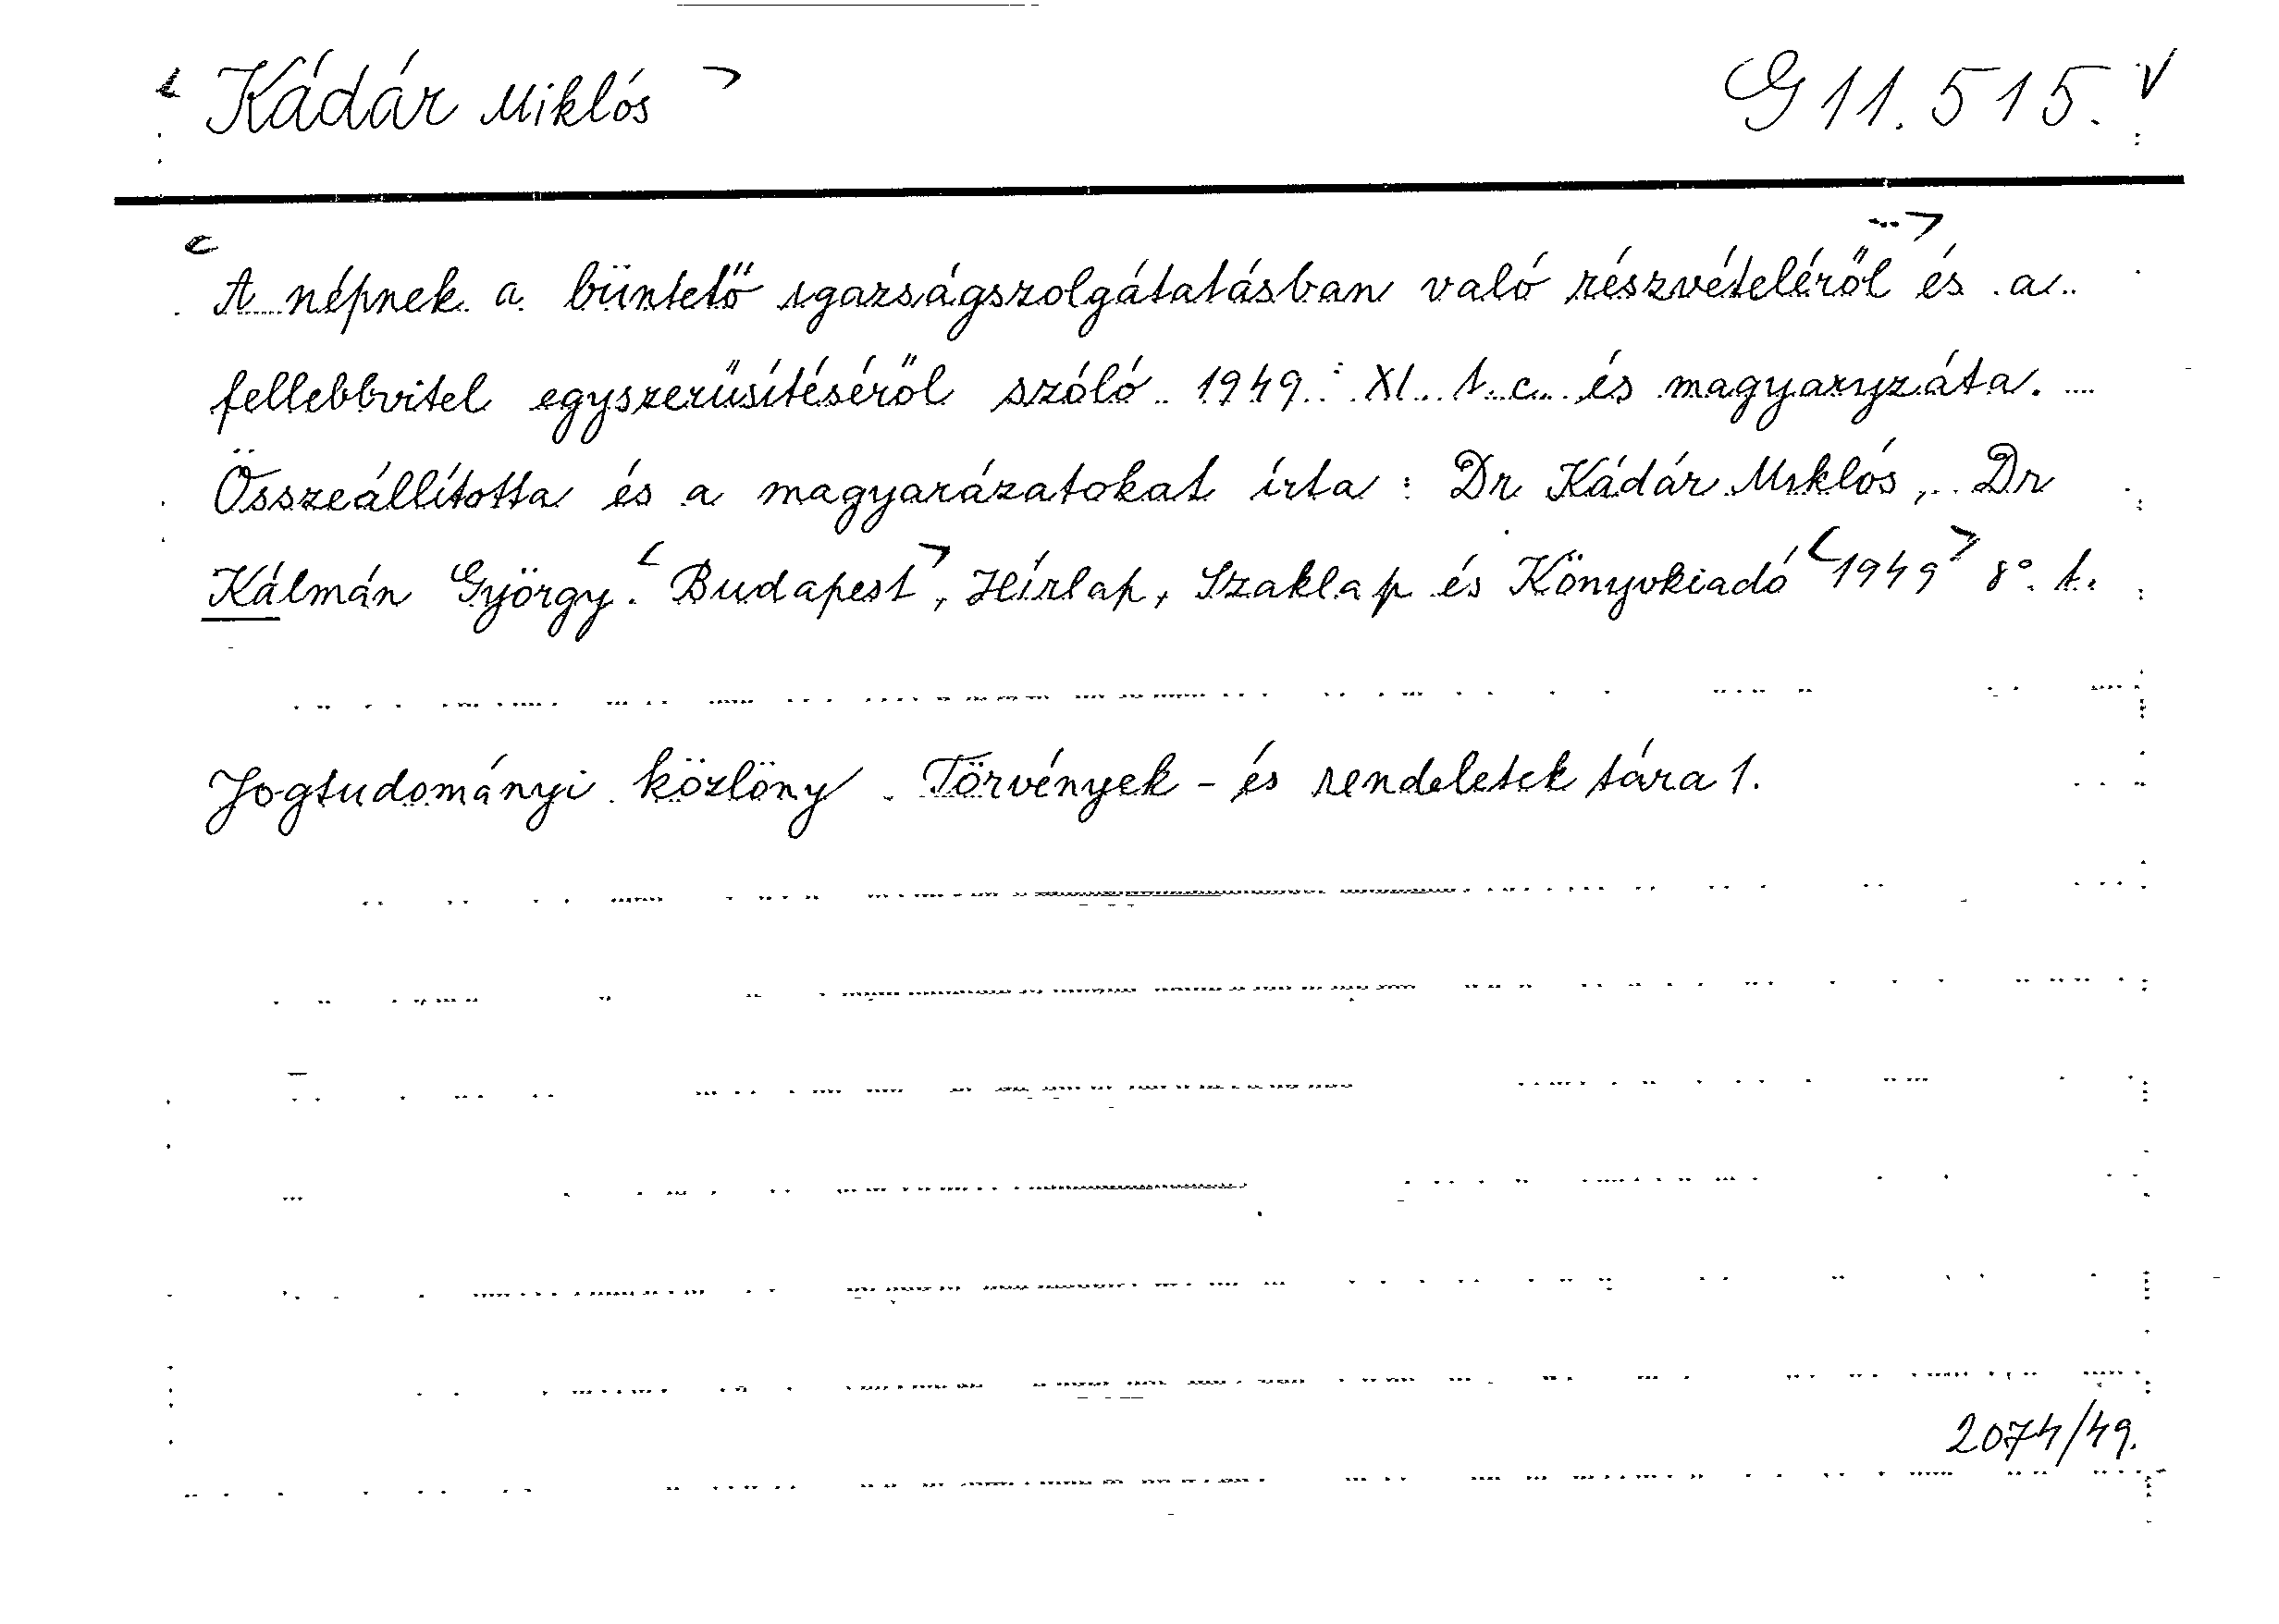 < Kádár Miklós > G 11.515. √
< A népnek a büntető igazságszolgátatásban való részvételéről ...> és a
fellebbvitel egyszerűsítéséről szóló 1949. XI. t. c. és magyaryzáta.
Összeállította és a magyarázatokat írta : Dr Kádár Miklós, Dr
Kálmán György. < Budapest >, Hírlap, Szaklap és Könyvkiadó < 1949 > 8°. t.
Jogtudományi közlöny. Törvények - és rendeletek tára 1.
2074/49.